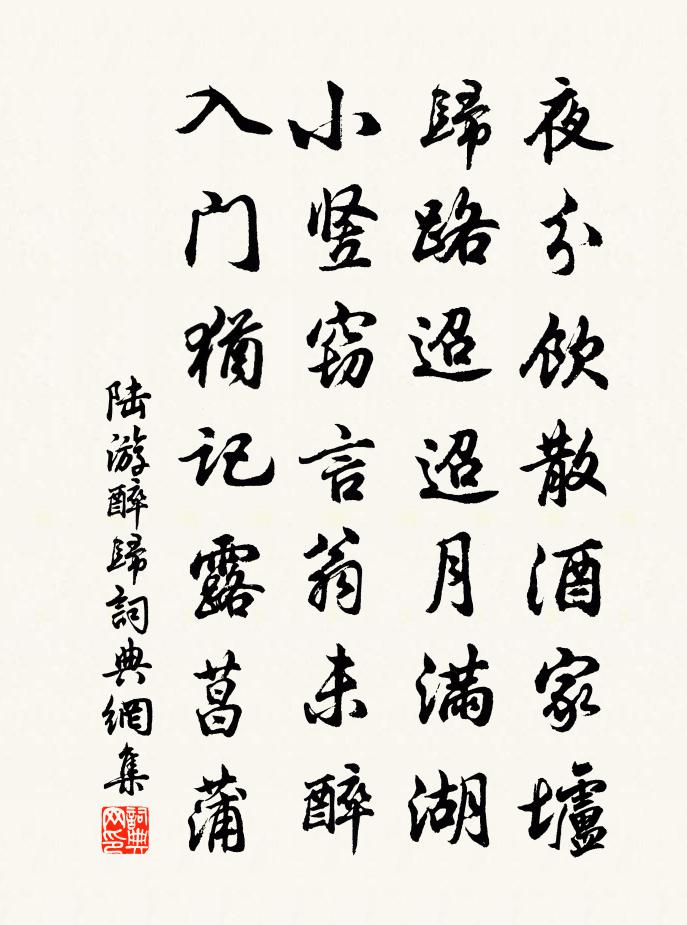 夜分飲散酒家壚
歸路迢迢月滿湖
小豎竊言翁未醉
入门猶記露菖蒲
陆游醉歸詞典網集
詞典网印